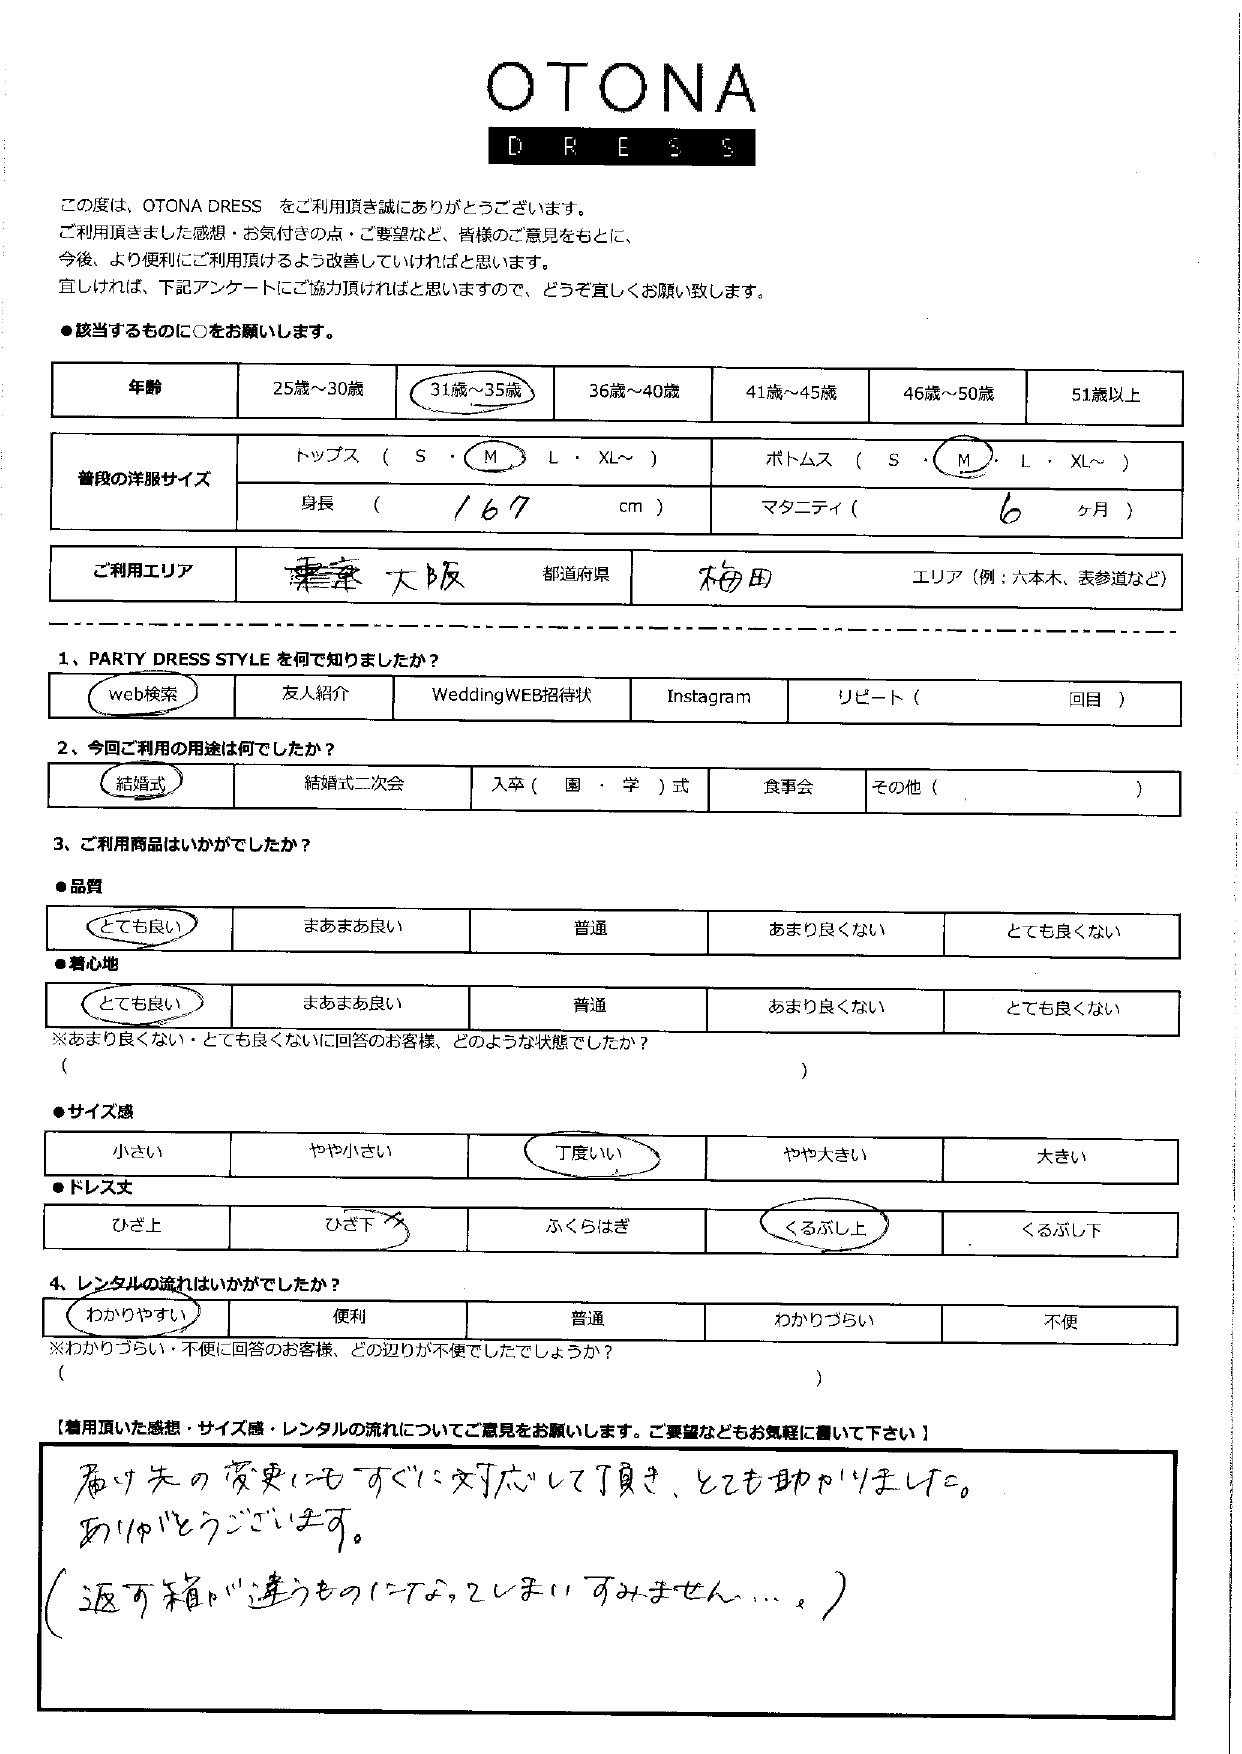 OTONA
DRESS
この度は、OTONA DRESS をご利用頂き誠にありがとうございます。
ご利用頂きました感想・お気付きの点・ご要望など、皆様のご意見をもとに、
今後、より便利にご利用頂けるよう改善していければと思います。
宜しければ、下記アンケートにご協力頂ければと思いますので、どうぞ宜しくお願い致します。
●該当するものに○をお願いします。
年齢 25歳～30歳 31歳～35歳 36歳～40歳 41歳～45歳 46歳～50歳 51歳以上
普段の洋服サイズ トップス ( S ・ M ) L ・ XL～ ) ボトムス ( S ・ M ・ L ・ XL～ )
身長 ( 167 cm ) マタニティ ( 6 ヶ月 )
ご利用エリア 東京 大阪 都道府県 梅田 エリア（例：六本木、表参道など）
1、PARTY DRESS STYLE を何で知りましたか？
web検索 友人紹介 WeddingWEB招待状 Instagram リピート（ 回目 ）
2、今回ご利用の用途は何でしたか？
結婚式 結婚式二次会 入卒（ 園 ・ 学 ）式 食事会 その他（ ）
3、ご利用商品はいかがでしたか？
●品質
とても良い まあまあ良い 普通 あまり良くない とても良くない
●着心地
とても良い まあまあ良い 普通 あまり良くない とても良くない
※あまり良くない・とても良くないに回答のお客様、どのような状態でしたか？
（ ）
●サイズ感
小さい やや小さい 丁度いい やや大きい 大きい
●ドレス丈
ひざ上 ひざ下 ふくらはぎ くるぶし上 くるぶし下
4、レンタルの流れはいかがでしたか？
わかりやすい 便利 普通 わかりづらい 不便
※わかりづらい・不便に回答のお客様、どの辺りが不便でしたでしょうか？
（ ）
【着用頂いた感想・サイズ感・レンタルの流れについてご意見をお願いします。ご要望などもお気軽に書いて下さい】
届け先の変更にもすぐに対応して頂き、とても助かりました。
ありがとうございます。
（返す箱が違うものになってしまいすみません…。）